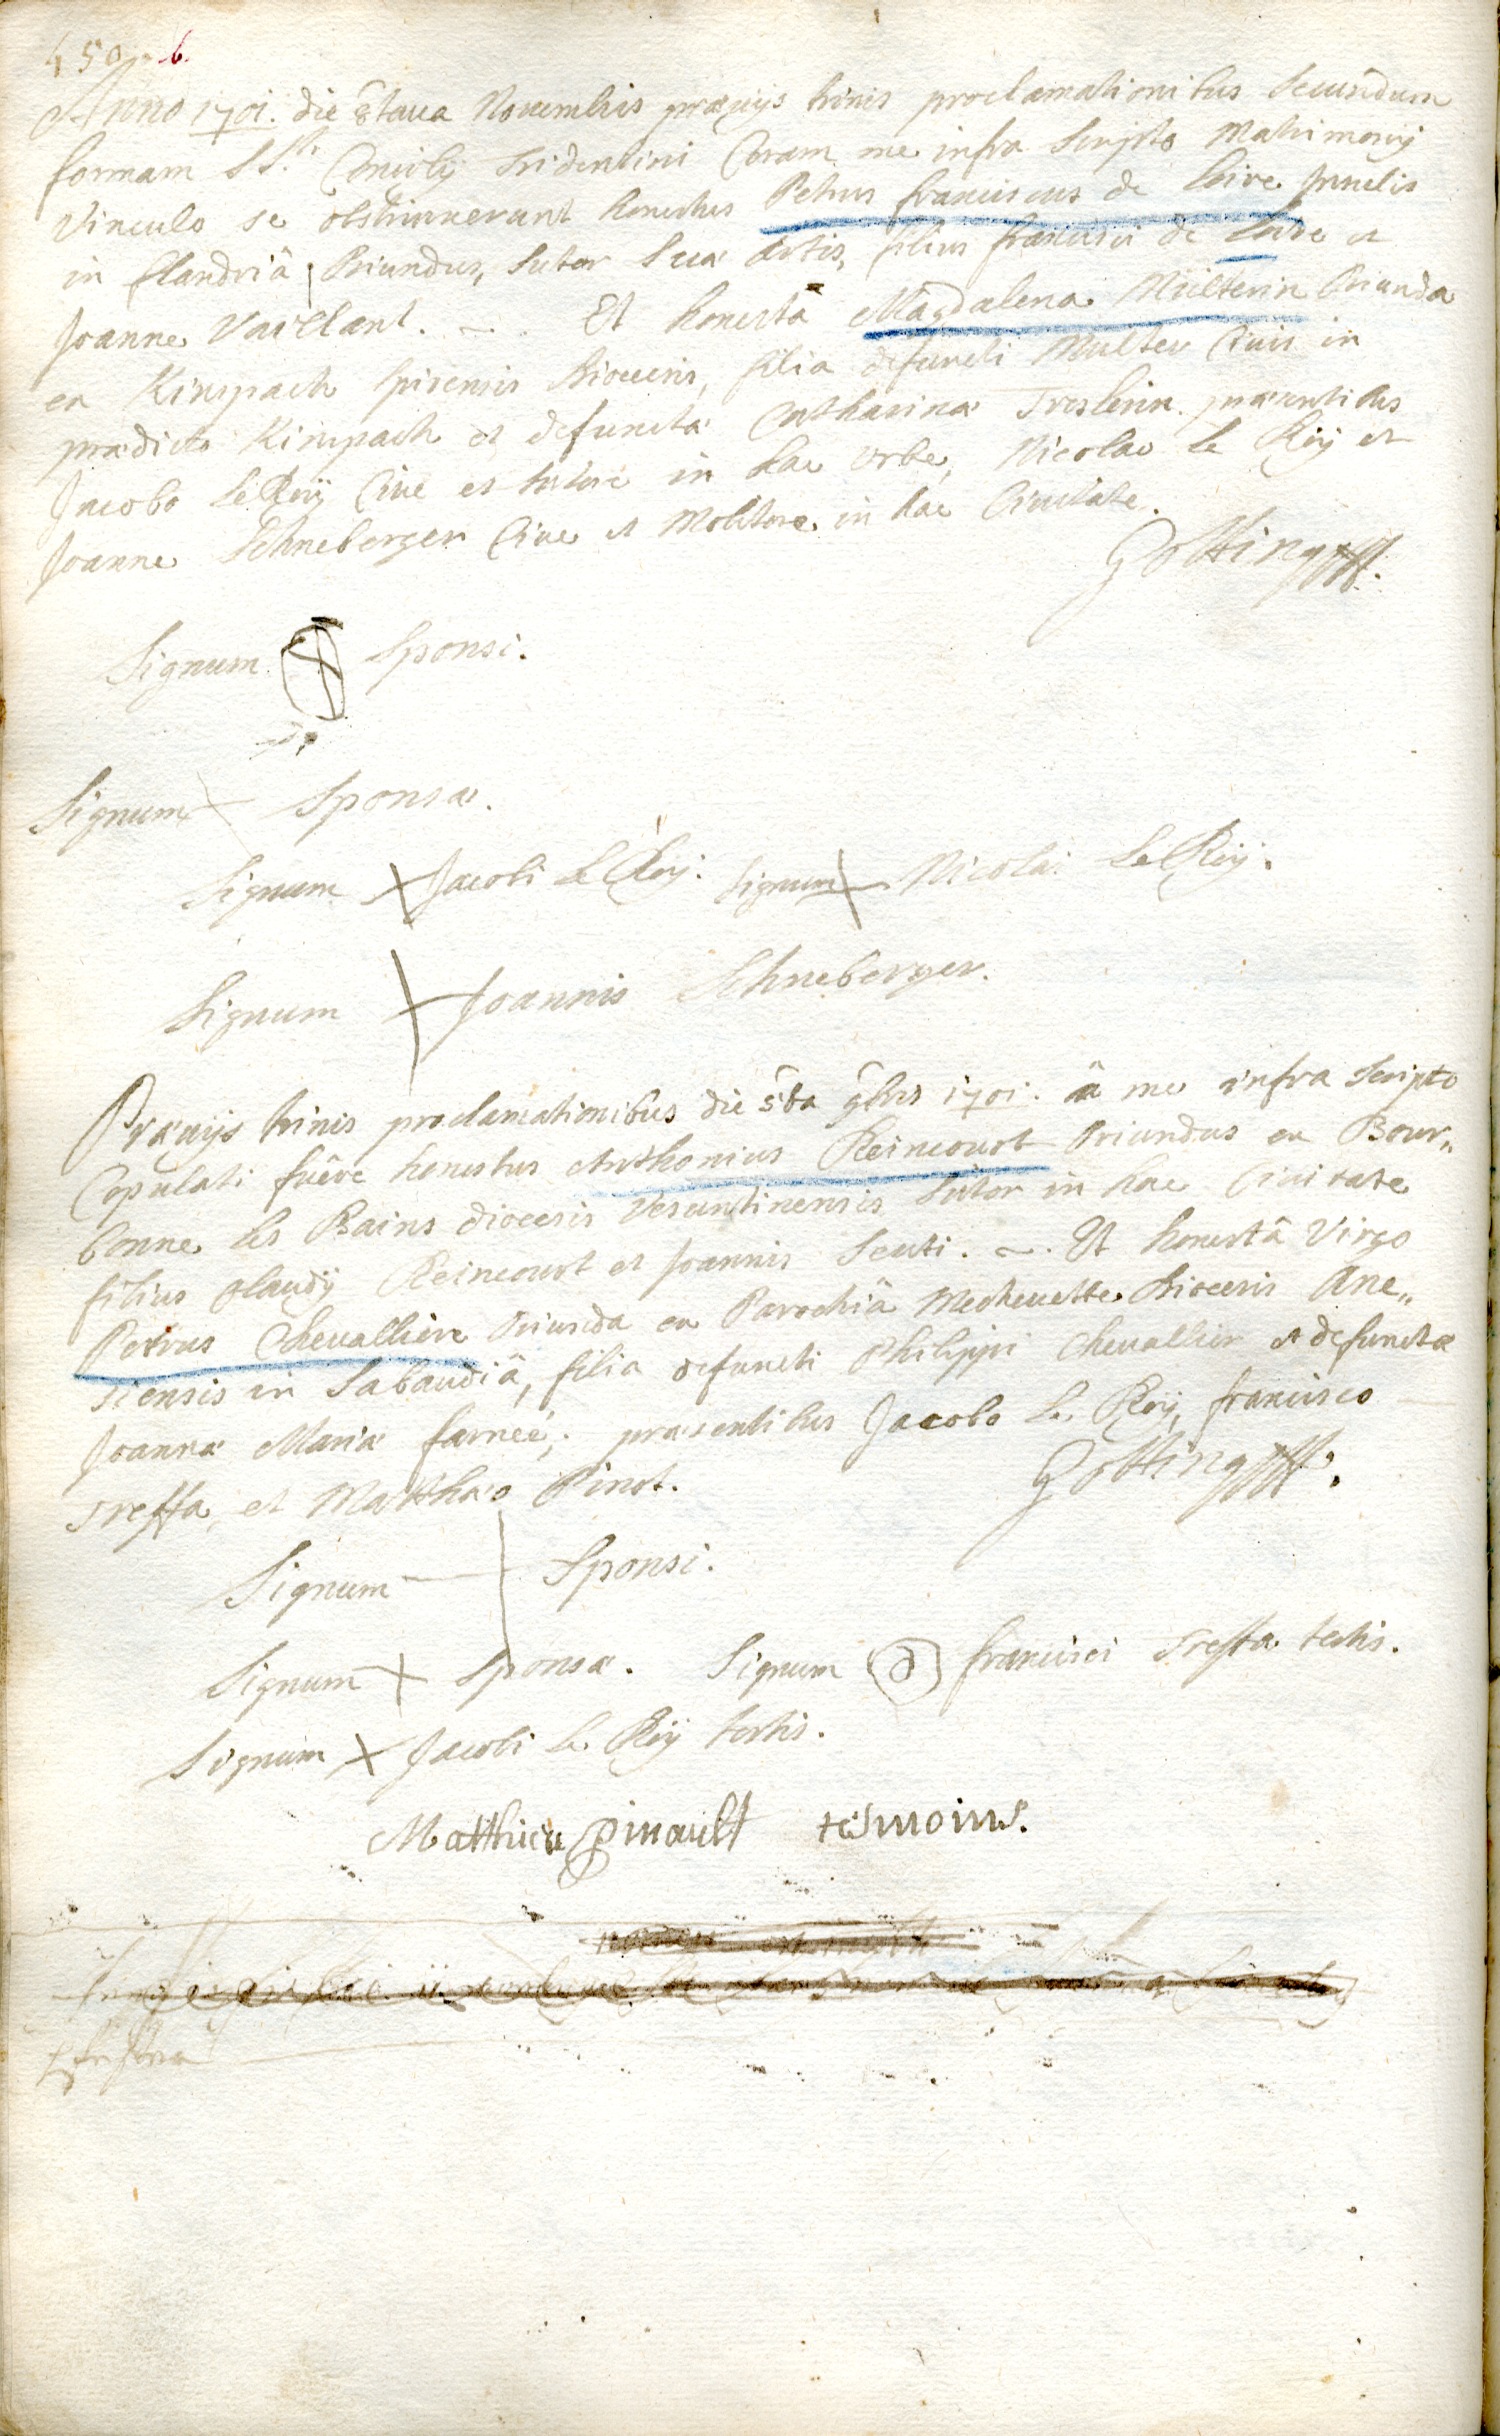 450. b.
Anno 1701. die 8taua Nouembris præuijs trinis proclamationibus secundum
formam SSti. Concilij Tridentini Coram me infra Scripto Matrimonij
Vinculo se obstrinxerunt honestus Petrus franciscus de Loire
in flandriâ Oriundus, Sutor Suæ Artis, filius francisci de Loire et
Joannæ Vaillant. Et honesta Magdalena Mülterin Orianda
ex Kirspach Spirensis dioecesis, filia defuncti Multer Ciuis in
prædicto Kirspach et defunctæ Catharinæ Treslerin. præsentibus
Jacobo Le Roÿ Ciue et sutore in hac Vrbe, Nicolao le Roÿ et
Joanne Schneberger Ciue et Molitore in hâc Ciuitate.
Gotting
Signum Sponsi.
Signum Sponsæ.
Signum Jacobi Le Roÿ. Signum Nicolai Le Roÿ.
Signum Joannis Schneberger.
Præuijs trinis proclamationibus die 8ba 9bris 1701. â me infra Scripto
Copulati fuêre honestus Anthonius Reincourt Oriundus ex Bour„
bonne les Bains dioecesis Vesuntinensis Sutor in hac Ciuitate
filius Claudij Reincourt et Joannis Senti. Et honestâ Virgo
Petrus Cheuallière Oriunda ex Parochiâ Mecheuette dioecesis Ane„
siensis in Sabaudiâ, filia defuncti Philippi Cheuallier et defunctæ
Joannæ Mariæ farneé; præsentibus Jacobo Le Roÿ, francisco
Treffa, et Matthæo Pinot.
Gotting
Signum Sponsi.
Signum Sponsæ. Signum francisci Treffa testis.
Signum Jacobi Le Roÿ testis.
Matthieu pinault tésmoins.